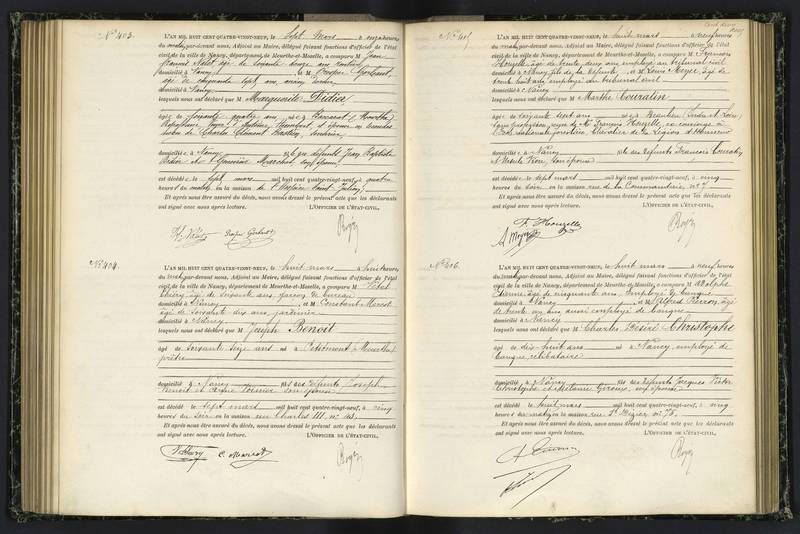 N° 403.
L'AN MIL HUIT CENT QUATRE-VINGT-NEUF, le sept mars à onze heures
du matin, par-devant nous, Adjoint au Maire, délégué faisant fonctions d'officier de l'état
civil de la ville de Nancy, département de Meurthe-et-Moselle, a comparu M Jean
âgé de soixante douze ans
domicilié à Nancy, et M Prosper
âgé de cinquante sept ans,
domicilié à Nancy
lesquels nous ont déclaré que Marguerite Didier
âgée de soixante quatre ans née à Baccarat (Meurthe)
Charles Clément
domiciliée à Nancy fille des défunts Jean Baptiste
Didier et son épouse
est décédée le sept mars mil huit cent quatre-vingt-neuf, à quatre
heures du matin, en la maison de l'Hospice Saint Julien
Et après nous être assuré du décès, nous avons dressé le présent acte que les déclarants
ont signé avec nous après lecture. L'OFFICIER DE L'ÉTAT-CIVIL,
N° 404.
L'AN MIL HUIT CENT QUATRE-VINGT-NEUF, le huit mars à huit heures
du matin, par-devant nous, Adjoint au Maire, délégué faisant fonctions d'officier de l'état
civil de la ville de Nancy, département de Meurthe-et-Moselle, a comparu M
Thiéry âgé de soixante ans, garçon de bureau
domicilié à Nancy, et M Constant Marcot
âgé de soixante dix ans, jardinier
domicilié à Nancy
lesquels nous ont déclaré que M Joseph Benoit
âgé de soixante seize ans né à (Meurthe)
prêtre
domicilié à Nancy fils des défunts Joseph
Benoit et son épouse
est décédé le sept mars mil huit cent quatre-vingt-neuf, à cinq
heures du soir en la maison rue Charles III, n°
Et après nous être assuré du décès, nous avons dressé le présent acte que les déclarants
ont signé avec nous après lecture. L'OFFICIER DE L'ÉTAT-CIVIL,
C. Marcot
N° 405.
L'AN MIL HUIT CENT QUATRE-VINGT-NEUF, le huit mars à neuf heures
du matin, par-devant nous, Adjoint au Maire, délégué faisant fonctions d'officier de l'état
civil de la ville de Nancy, département de Meurthe-et-Moselle, a comparu M
Houzelle âgé de trente deux ans employé au tribunal civil
domicilié à Nancy, fils de la défunte, et M Louis Moyer âgé de
trente huit ans employé au tribunal civil
domicilié à Nancy
lesquels nous ont déclaré que Marthe Couratin
âgée de soixante sept ans née à Beaulieu (Indre et Loire)
sans profession, veuve de M. François Houzelle,
Chevalier de la Légion d'Honneur
domiciliée à Nancy fille des défunts François Couratin
et Ursule son épouse
est décédée le sept mars mil huit cent quatre-vingt-neuf, à cinq
heures du soir, en la maison rue de la Commanderie n° 7
Et après nous être assuré du décès, nous avons dressé le présent acte que les déclarants
ont signé avec nous après lecture. L'OFFICIER DE L'ÉTAT-CIVIL,
F. Houzelle
N° 406.
L'AN MIL HUIT CENT QUATRE-VINGT-NEUF, le huit mars à neuf heures
du matin, par-devant nous, Adjoint au Maire, délégué faisant fonctions d'officier de l'état
civil de la ville de Nancy, département de Meurthe-et-Moselle, a comparu M Adolphe
âgé de cinquante ans, employé de banque
domicilié à Nancy, et M Alfred Pierron, âgé
de trente un ans aussi employé de banque
domicilié à Nancy
lesquels nous ont déclaré que M Charles Désiré Christophe
âgé de dix huit ans né à Nancy, employé de
banque, célibataire
domicilié à Nancy fils des défunts Jacques Victor
Christophe et son épouse
est décédé le huit mars mil huit cent quatre-vingt-neuf, à cinq
heures du matin en la maison rue St Dizier n° 75.
Et après nous être assuré du décès, nous avons dressé le présent acte que les déclarants
ont signé avec nous après lecture. L'OFFICIER DE L'ÉTAT-CIVIL,